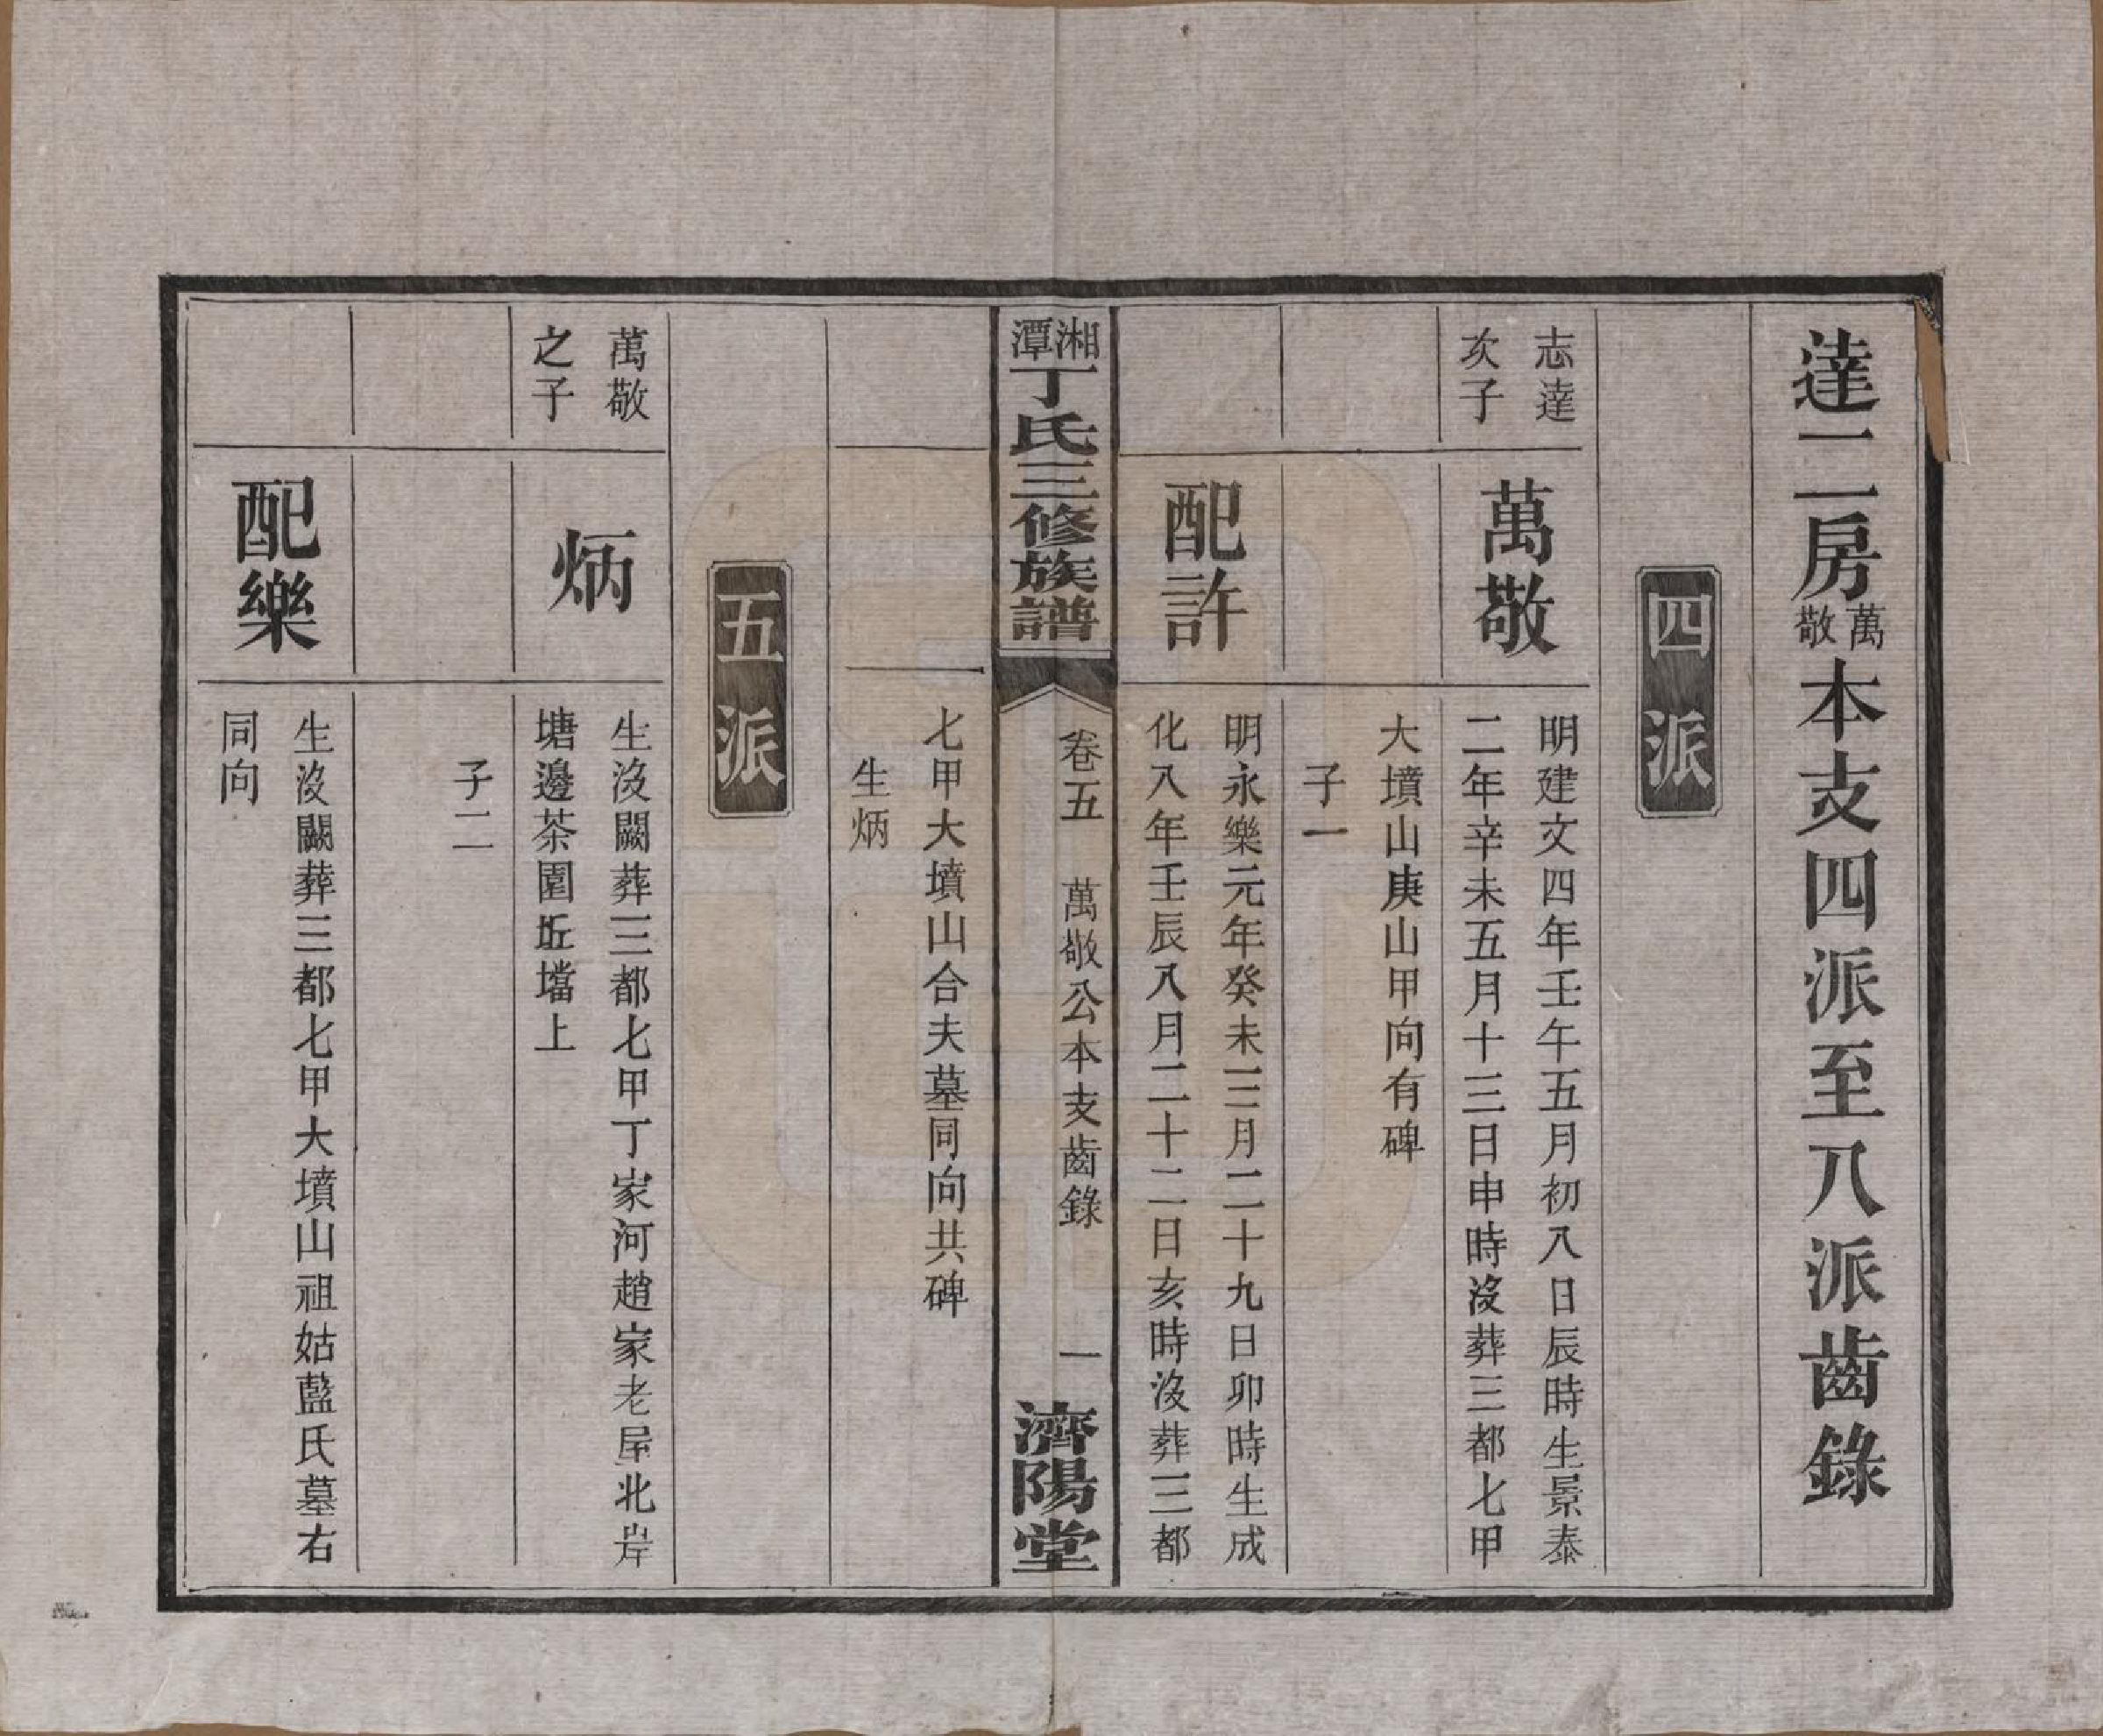 達二房萬敬本支四派至八派齒錄
四派
志達
次子
萬敬
明建文四年壬午五月初八日辰時生景泰
二年辛未五月十三日申時沒葬三都七甲
大墳山庚山甲向有碑
子一
配許
明永樂元年癸未三月二十九日卯時生成
化八年壬辰八月二十二日亥時沒葬三都
湘潭丁氏三修族譜
卷五 萬敬公本支齒錄 一
濟陽堂
七甲大墳山合夫墓同向共碑
生炳
五派
萬敬
之子
炳
生沒闕葬三都七甲丁家河趙家老屋北岸
塘邊茶園坵壋上
子二
配樂
生沒闕葬三都七甲大墳山祖姑藍氏墓右
同向